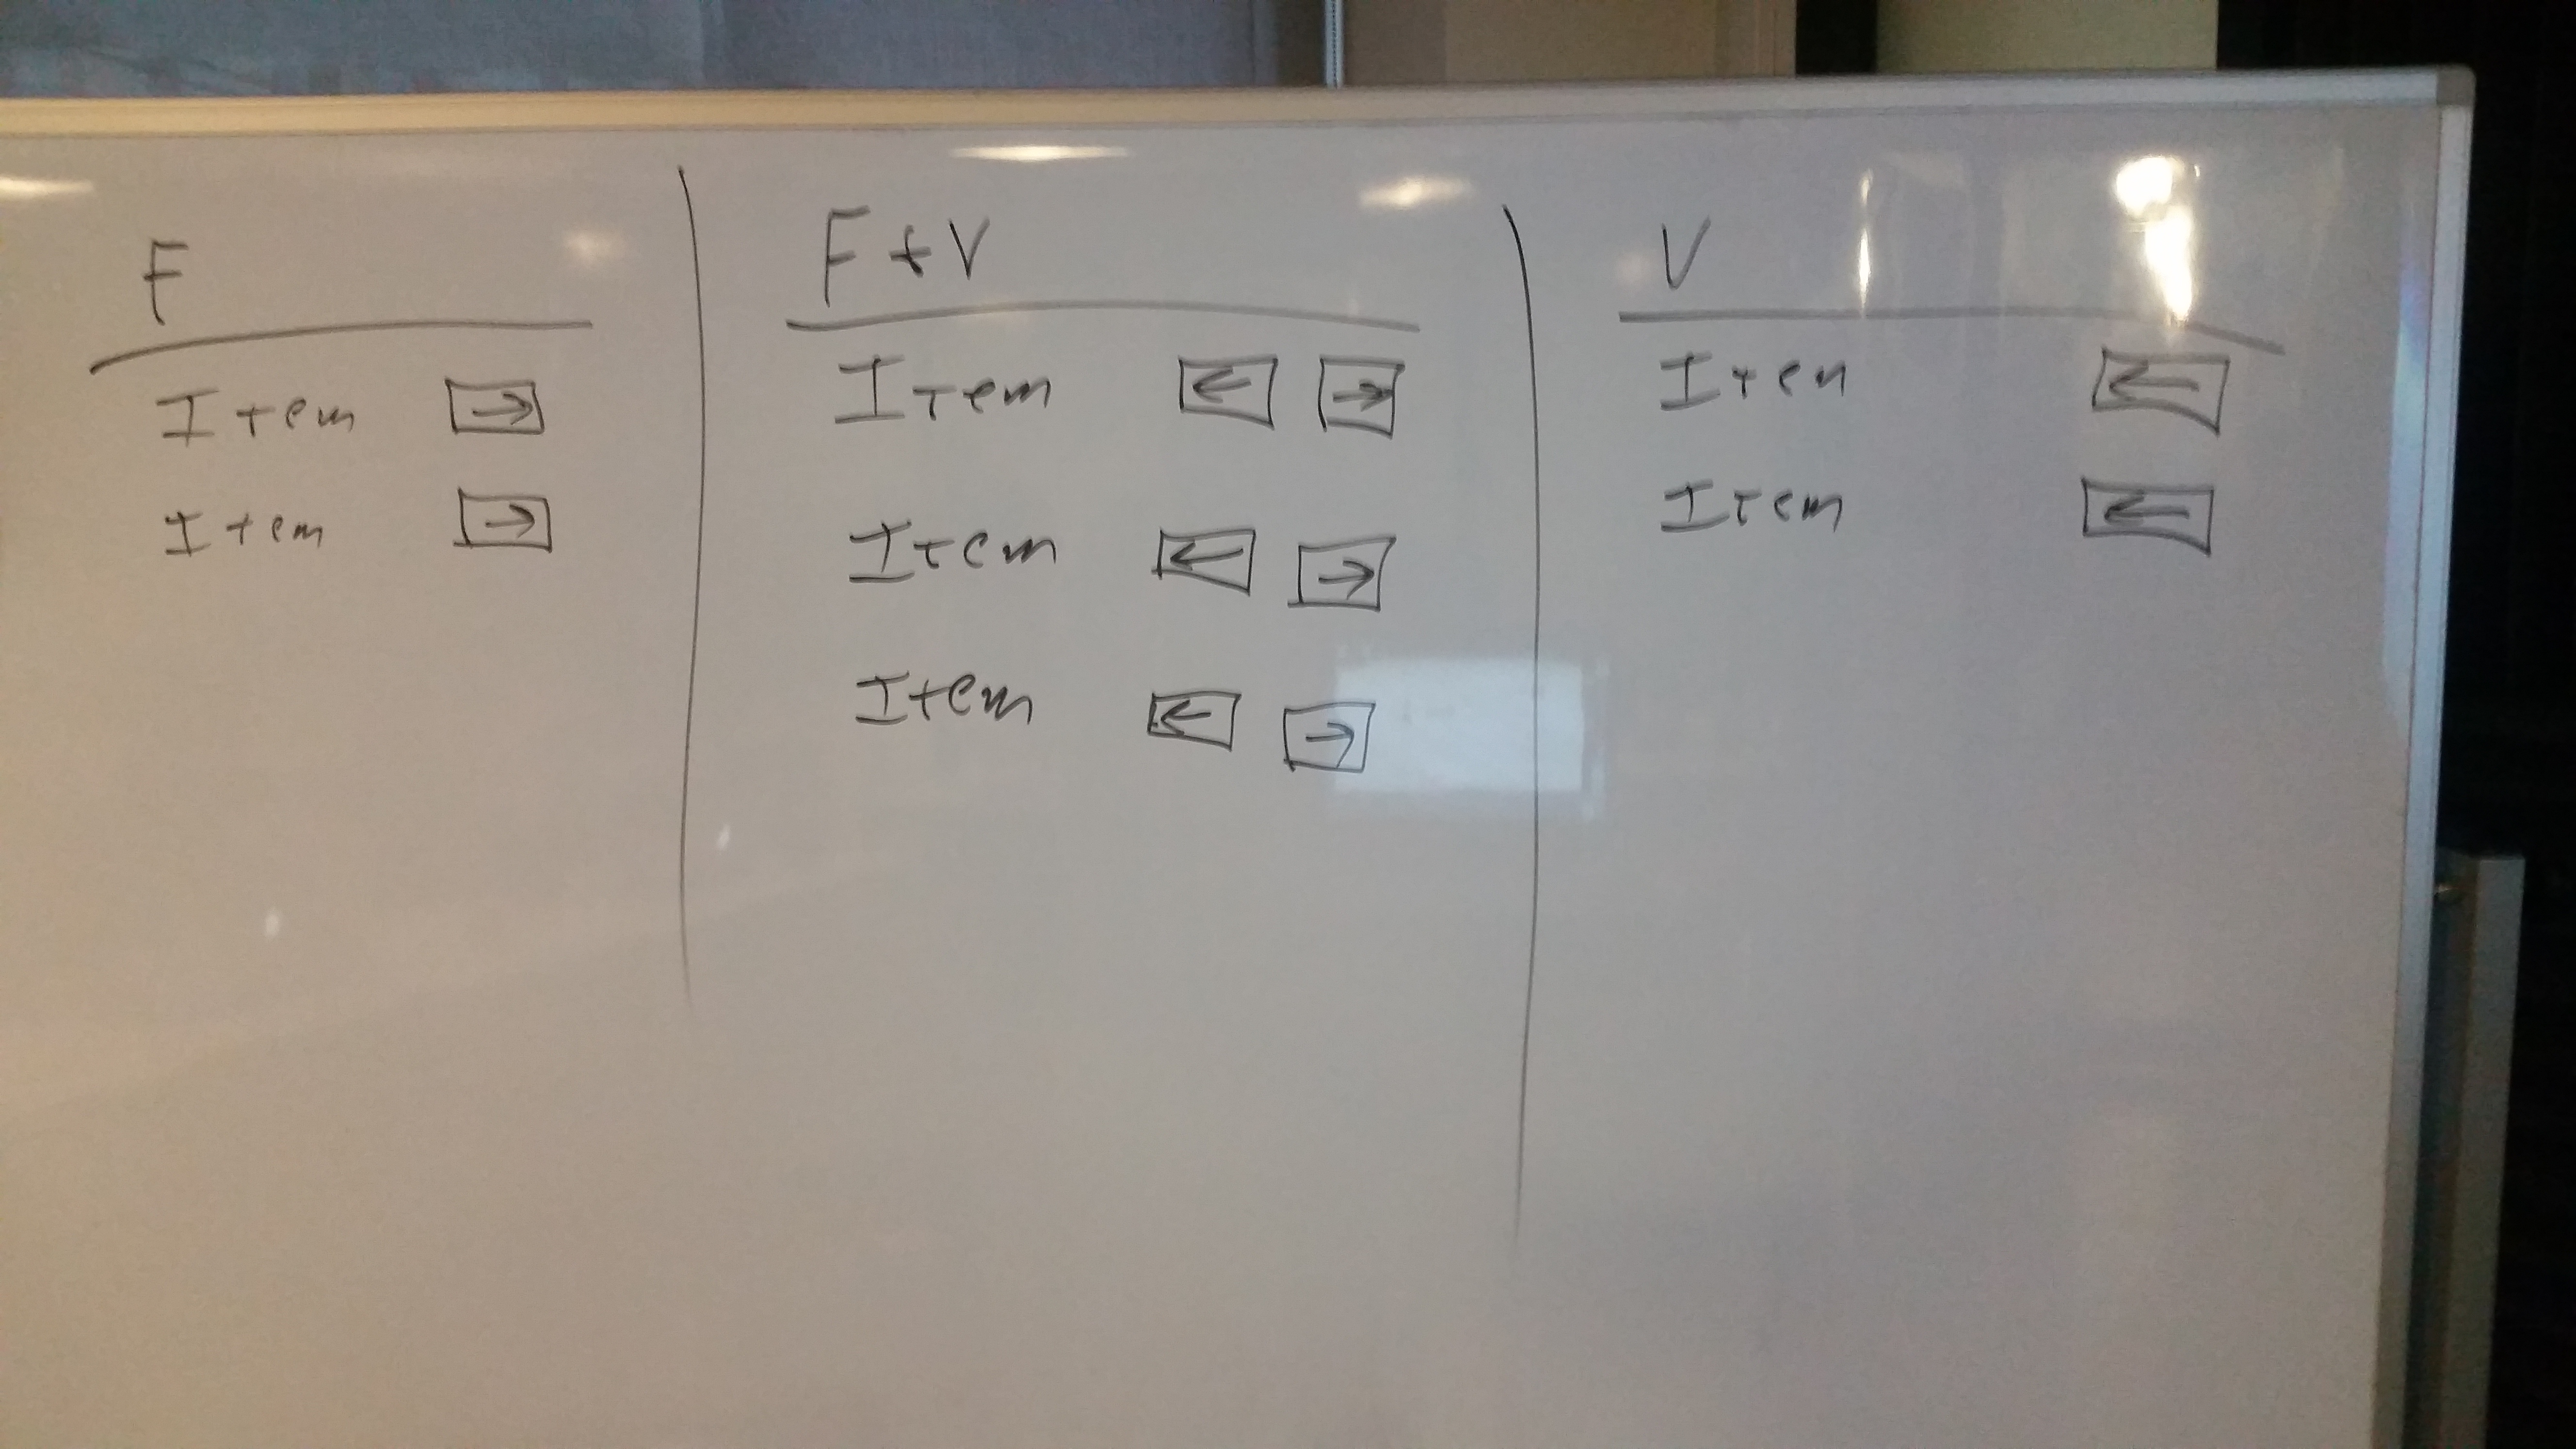 F
Item →
Item →
F + V
Item ← →
Item ← →
Item ← →
V
Item ←
Item ←